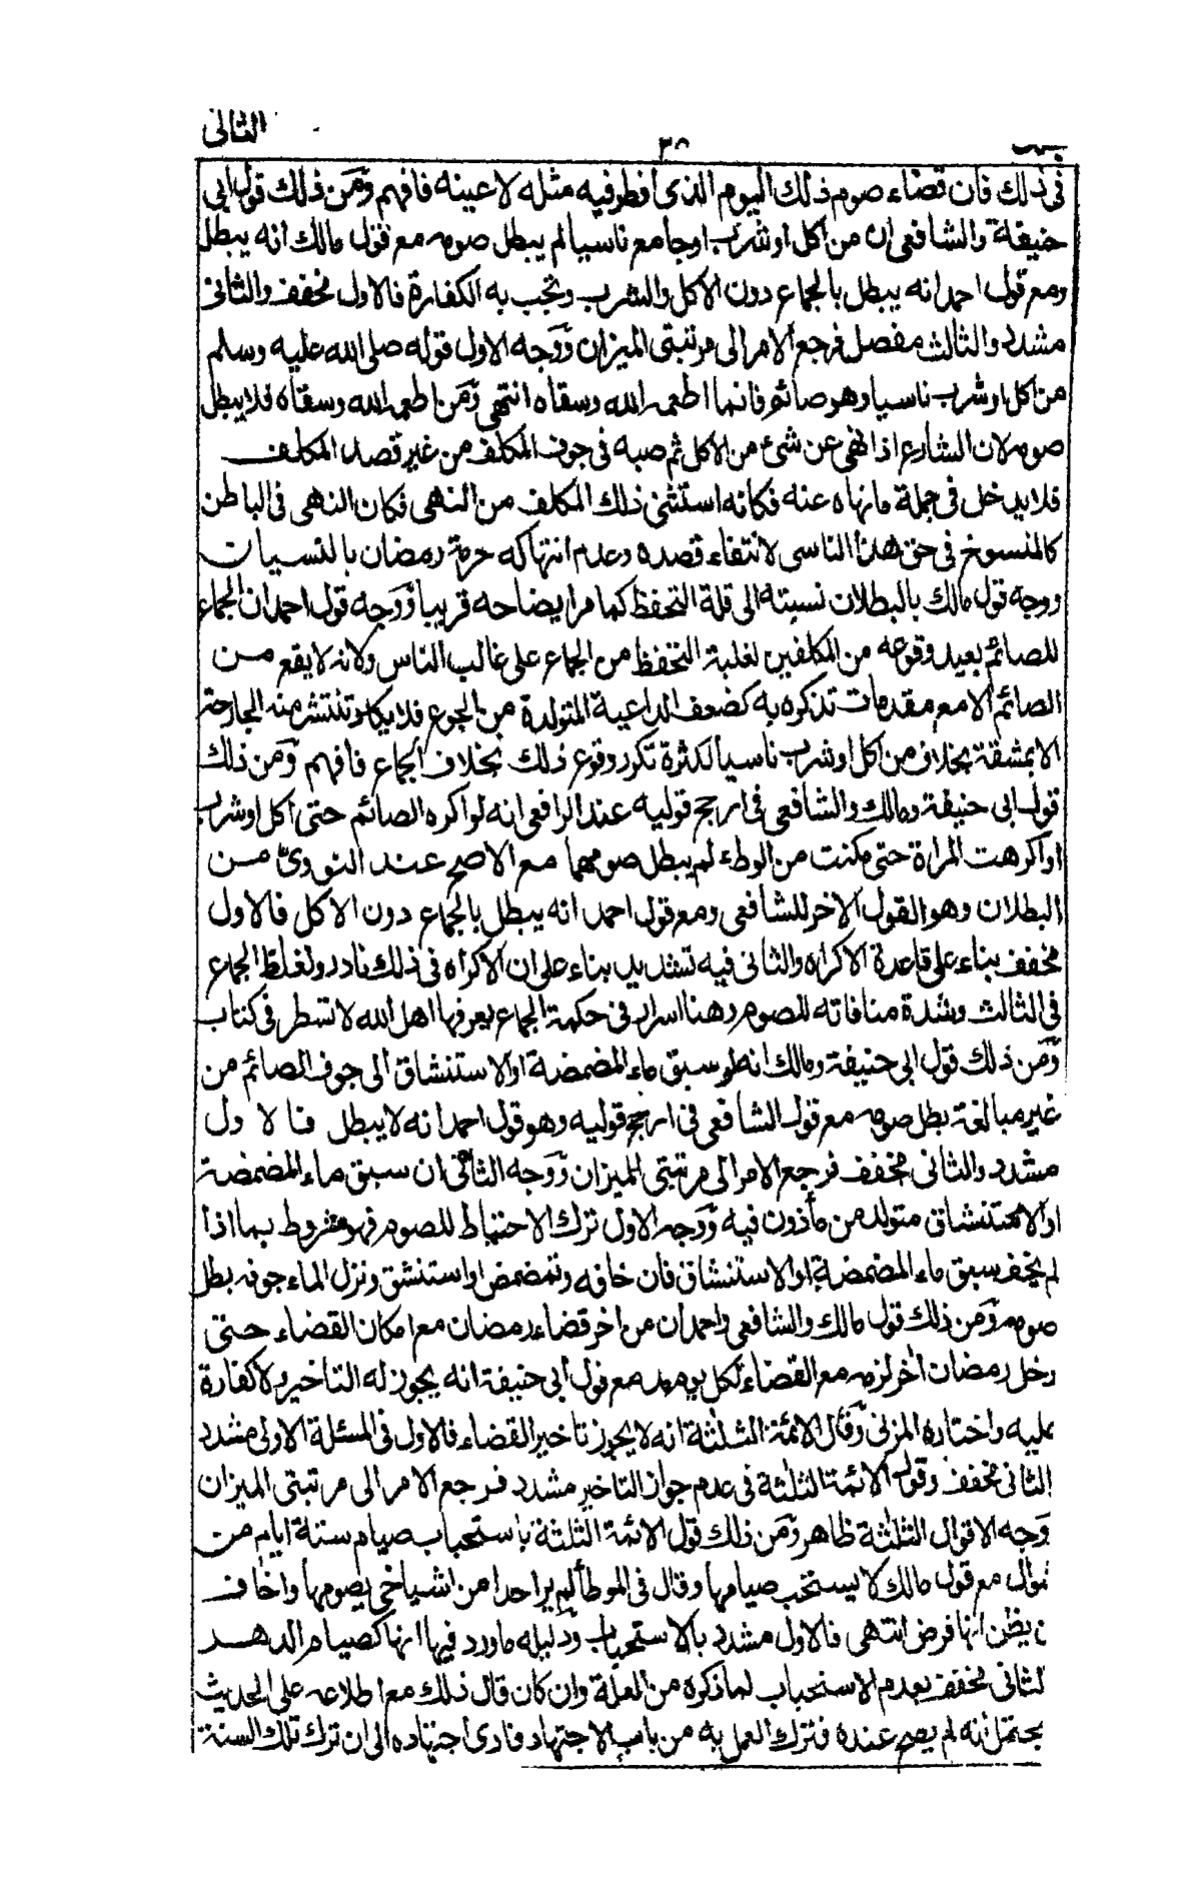 الثانى
٣٨
فى ذلك فان قضاء صوم ذلك اليوم الذى افطر فيه مثله لا عينه فافهم ومن ذلك قول ابى
حنيفة والشافعى ان من اكل او شرب او جامع ناسيا لم يبطل صومه مع قول مالك انه يبطل
ومع قول احمد انه يبطل بالجماع دون الاكل والشرب وتجب به الكفارة فالاول مخفف والثانى
مشدد والثالث مفصل فرجع الامر الى مرتبتى الميزان ووجه الاول قوله صلى الله عليه وسلم
من اكل او شرب ناسيا وهو صائم فانما اطعمه الله وسقاه انتهى ومن اطعمه الله وسقاه فلا يبطل
صومه لان الشارع اذا نهى عن شئ من الاكل ثم صبه فى جوف المكلف من غير قصد المكلف
فلا يدخل فى جملة ما نهاه عنه فكانه استثنى ذلك المكلف من النهى فكان النهى فى الباطن
كالمنسوخ فى حق هذا الناسى لانتفاء قصده وعدم انتهاكه حرمة رمضان بالنسيان
ووجه قول مالك بالبطلان نسبته الى قلة التحفظ كما مر ايضاحه قريبا ووجه قول احمد ان الجماع
للصائم بعيد وقوعه من المكلفين لغلبة التحفظ من الجماع على غالب الناس ولانه لا يقع من
الصائم الا مع مقدمات تذكره به كضعف الداعية المتولدة من الجوع فلا يكاد تنتشر منه الجارحة
الا بمشقة بخلاف من اكل او شرب ناسيا لكثرة تكرر وقوع ذلك بخلاف الجماع فافهم ومن ذلك
قول ابى حنيفة ومالك والشافعى فى ارجح قوليه عند الرافعى انه لو اكره الصائم حتى اكل او شرب
او اكرهت المراة حتى مكنت من الوطء لم يبطل صومهما مع الاصح عند النووى من
البطلان وهو القول الاخر للشافعى ومع قول احمد انه يبطل بالجماع دون الاكل فالاول
مخفف بناء على قاعدة الاكراه والثانى فيه تشديد بناء على ان الاكراه فى ذلك نادر ولغلظ الجماع
فى الثالث وشدة منافاته للصوم وهنا اسرار فى حكمة الجماع يعرفها اهل الله لا تسطر فى كتاب
ومن ذلك قول ابى حنيفة ومالك انه لو سبق ماء المضمضة او الاستنشاق الى جوف الصائم من
غير مبالغة بطل صومه مع قول الشافعى فى ارجح قوليه وهو قول احمد انه لا يبطل فالاول
مشدد والثانى مخفف فرجع الامر الى مرتبتى الميزان ووجه الثانى ان سبق ماء المضمضة
او الاستنشاق متولد من ماذون فيه ووجه الاول ترك الاحتياط للصوم فهو مشروط بما اذا
لم يخف سبق ماء المضمضة او الاستنشاق فان خافه وتمضمض او استنشق ونزل الماء جوفه بطل
صومه ومن ذلك قول مالك والشافعى واحمد ان من اخر قضاء رمضان مع امكان القضاء حتى
دخل رمضان آخر لزمه مع القضاء لكل يوم مد مع قول ابى حنيفة انه يجوز له التاخير ولا كفارة
عليه واختاره المزنى وقال الائمة الثلثة انه لا يجوز تاخير القضاء فالاول فى المسئلة الاولى مشدد
الثانى مخفف وقول الائمة الثلثة فى عدم جواز التاخير مشدد فرجع الامر الى مرتبتى الميزان
ووجه الاقوال الثلثة ظاهر ومن ذلك قول الائمة الثلثة باستحباب صيام ستة ايام من
شوال مع قول مالك لا يستحب صيامها وقال فى الموطأ لم ير احدا من اشياخى يصومها واخاف
ن يظن انها فرض انتهى فالاول مشدد بالاستحباب ودليله ما ورد فيها انها كصيام الدهر
لثانى مخفف بعدم الاستحباب لما ذكره من العلة وان كان قال ذلك مع اطلاعه على الحديث
يحتمل انه لم يصح عنده فترك العمل به من باب الاجتهاد فادى اجتهاده الى ان ترك تلك السنة